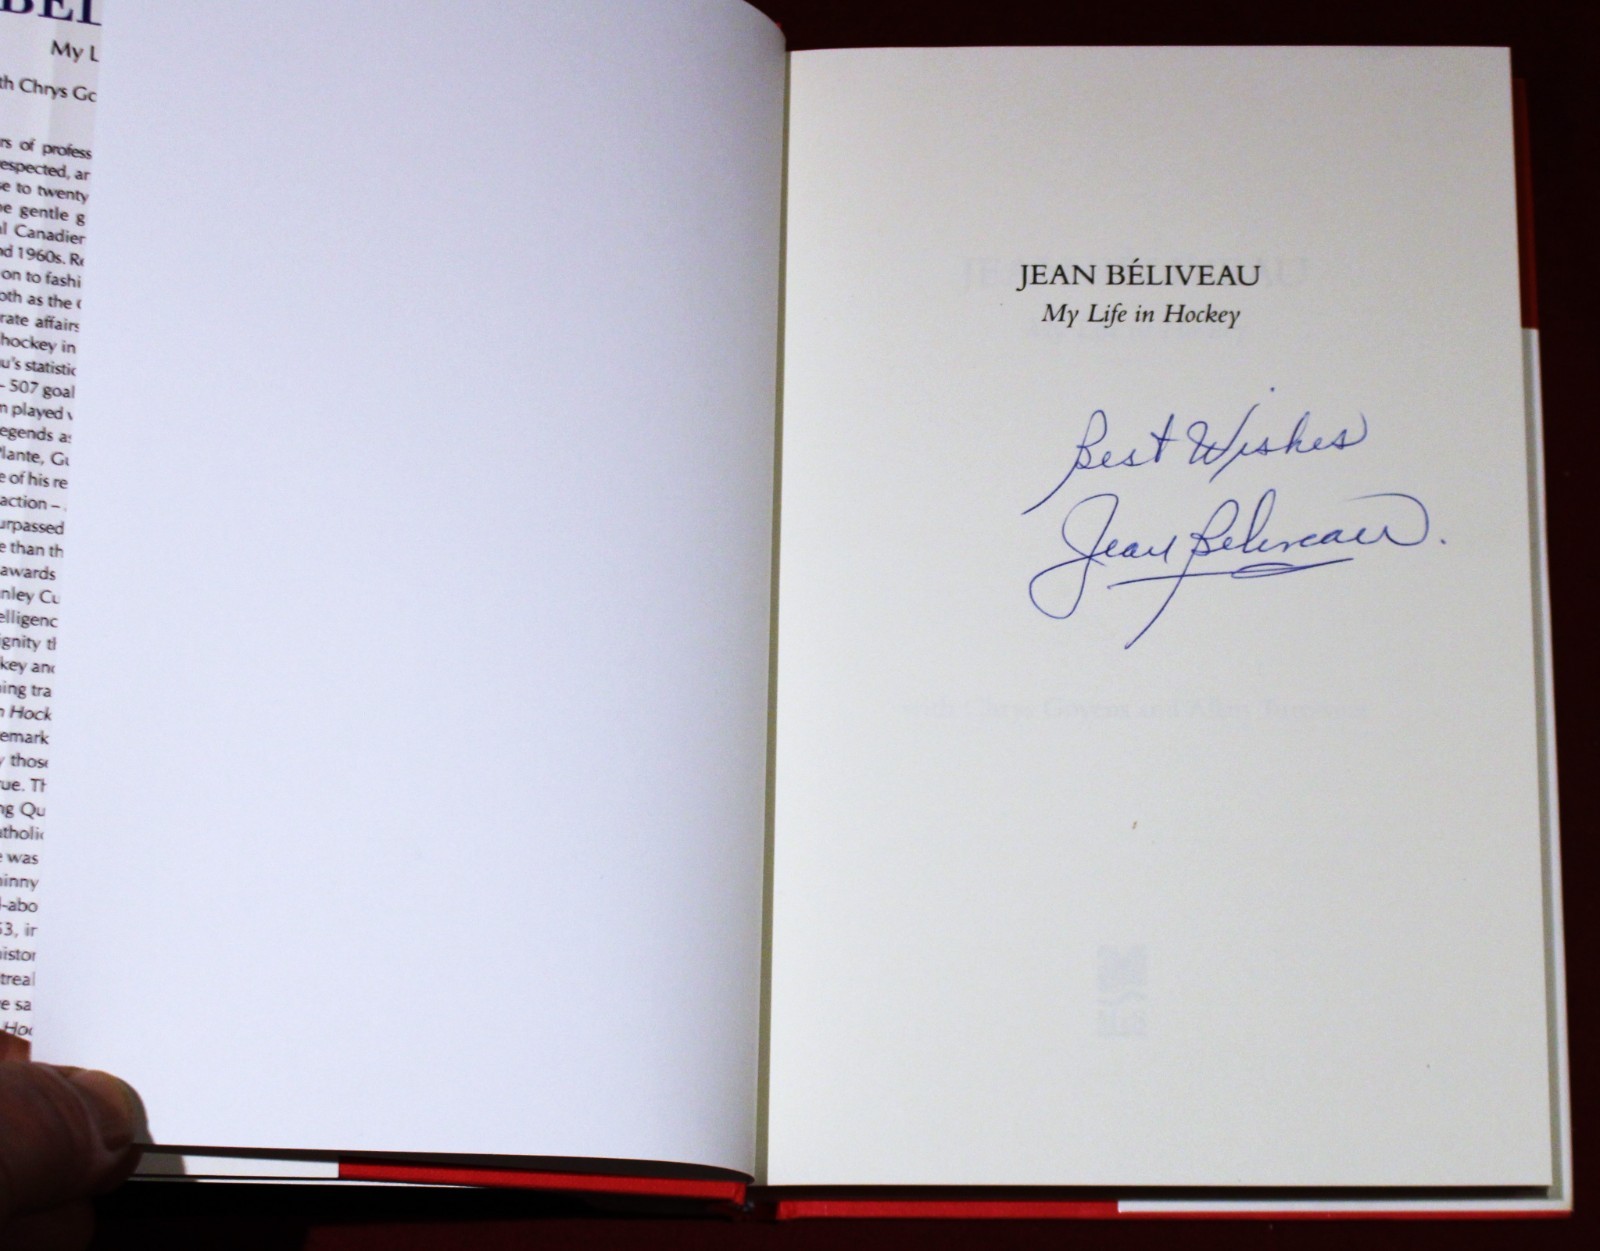 My L
th Chrys Go
rs of profess
espected, ar
se to twenty
he gentle g
al Canadier
nd 1960s. Re
on to fashi
oth as the
rate affairs
hockey in
u's statistic
– 507 goal
m played
egends as
Plante, Gu
e of his re
action –
urpassed
e than th
awards
nley Cu
elligenc
ignity th
key and
ning tra
n Hock
emark
y those
ue. Th
ng Qu
atholic
e was
hinny
l-abo
53, in
histor
treal
e sa
Hoc
JEAN BÉLIVEAU
My Life in Hockey
Best Wishes
Jean Beliveau.